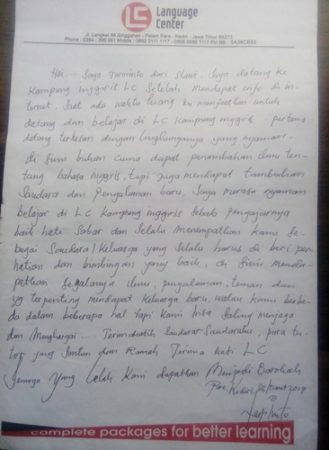 LC Language Center
Jl. Langkat 88 Singgahan - Pelem Pare - Kediri - Jawa Timur 64213
Hai... Saya Turminto dari Slawi. Saya datang ke
Kampung Inggris LC Setelah Mendapat info di in-
ternet. Saat ada waktu luang ku manfaatkan untuk
datang dan belajar di LC Kampung Inggris. pertama
datang terkesan dengan lingkungannya yang nyaman.
di sini bukan cuma dapat penambahan ilmu ten-
tang bahasa inggris, tapi juga mendapat tambahan
Saudara dan Pengalaman baru, Saya merasa nyaman
belajar di LC Kampung Inggris sebab pengajarnya
baik hati Sabar dan Selalu menempatkan kami Se-
bagai Saudara / Keluarga yang Selalu harus di beri per-
hatian dan bimbingan yang baik, di Sini Menda-
patkan Segalanya ilmu, pengalaman, teman dan
yg terpenting mendapat Keluarga baru, walau kami berbe-
da dalam beberapa hal tapi kami bisa Saling menjaga
dan Menghargai...
yang Santun dan Ramah Terima kasih LC
Semoga yang telah Kami dapatkan Menjadi Barokah
Pare, Kediri, 2019
complete packages for better learning